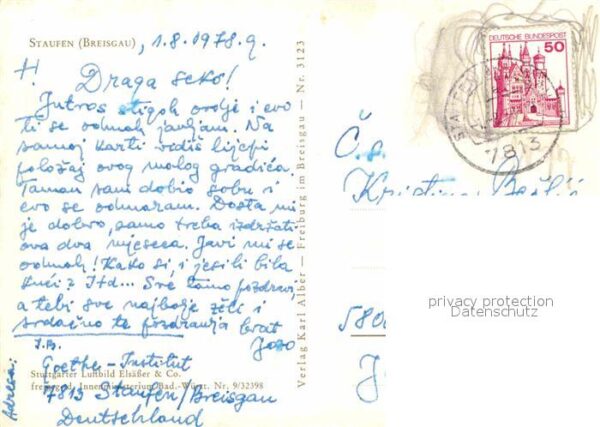 STAUFEN (BREISGAU), 1.8.1978.g.
Draga seko!
Jutros stigoh ovdje i evo
ti se odmah javljam. Na
samoj karti vidiš lijepi
položaj ovog malog gradića.
Taman sam dobio sobu i
evo se odmaram. Dosta mi
je dobro, samo treba izdržati
ova dva mjeseca. Javi mi se
odmah! Kako si, i jesi li bila
kući? Itd... Sve tamo pozdravi,
a tebi sve najbolje želi i
srdačno te pozdravlja brat
Jozo
Adresa:
Goethe-Institut
7813 Staufen/Breisgau
Deutschland
Stuttgarter Luftbild Elsäßer & Co.
freigegeb. Innenministerium Bad.-Württ. Nr. 9/32398
Verlag Karl Alber — Freiburg im Breisgau — Nr. 3123
DEUTSCHE BUNDESPOST
50
7813
Č.s.
Kristina
580
privacy protection
Datenschutz